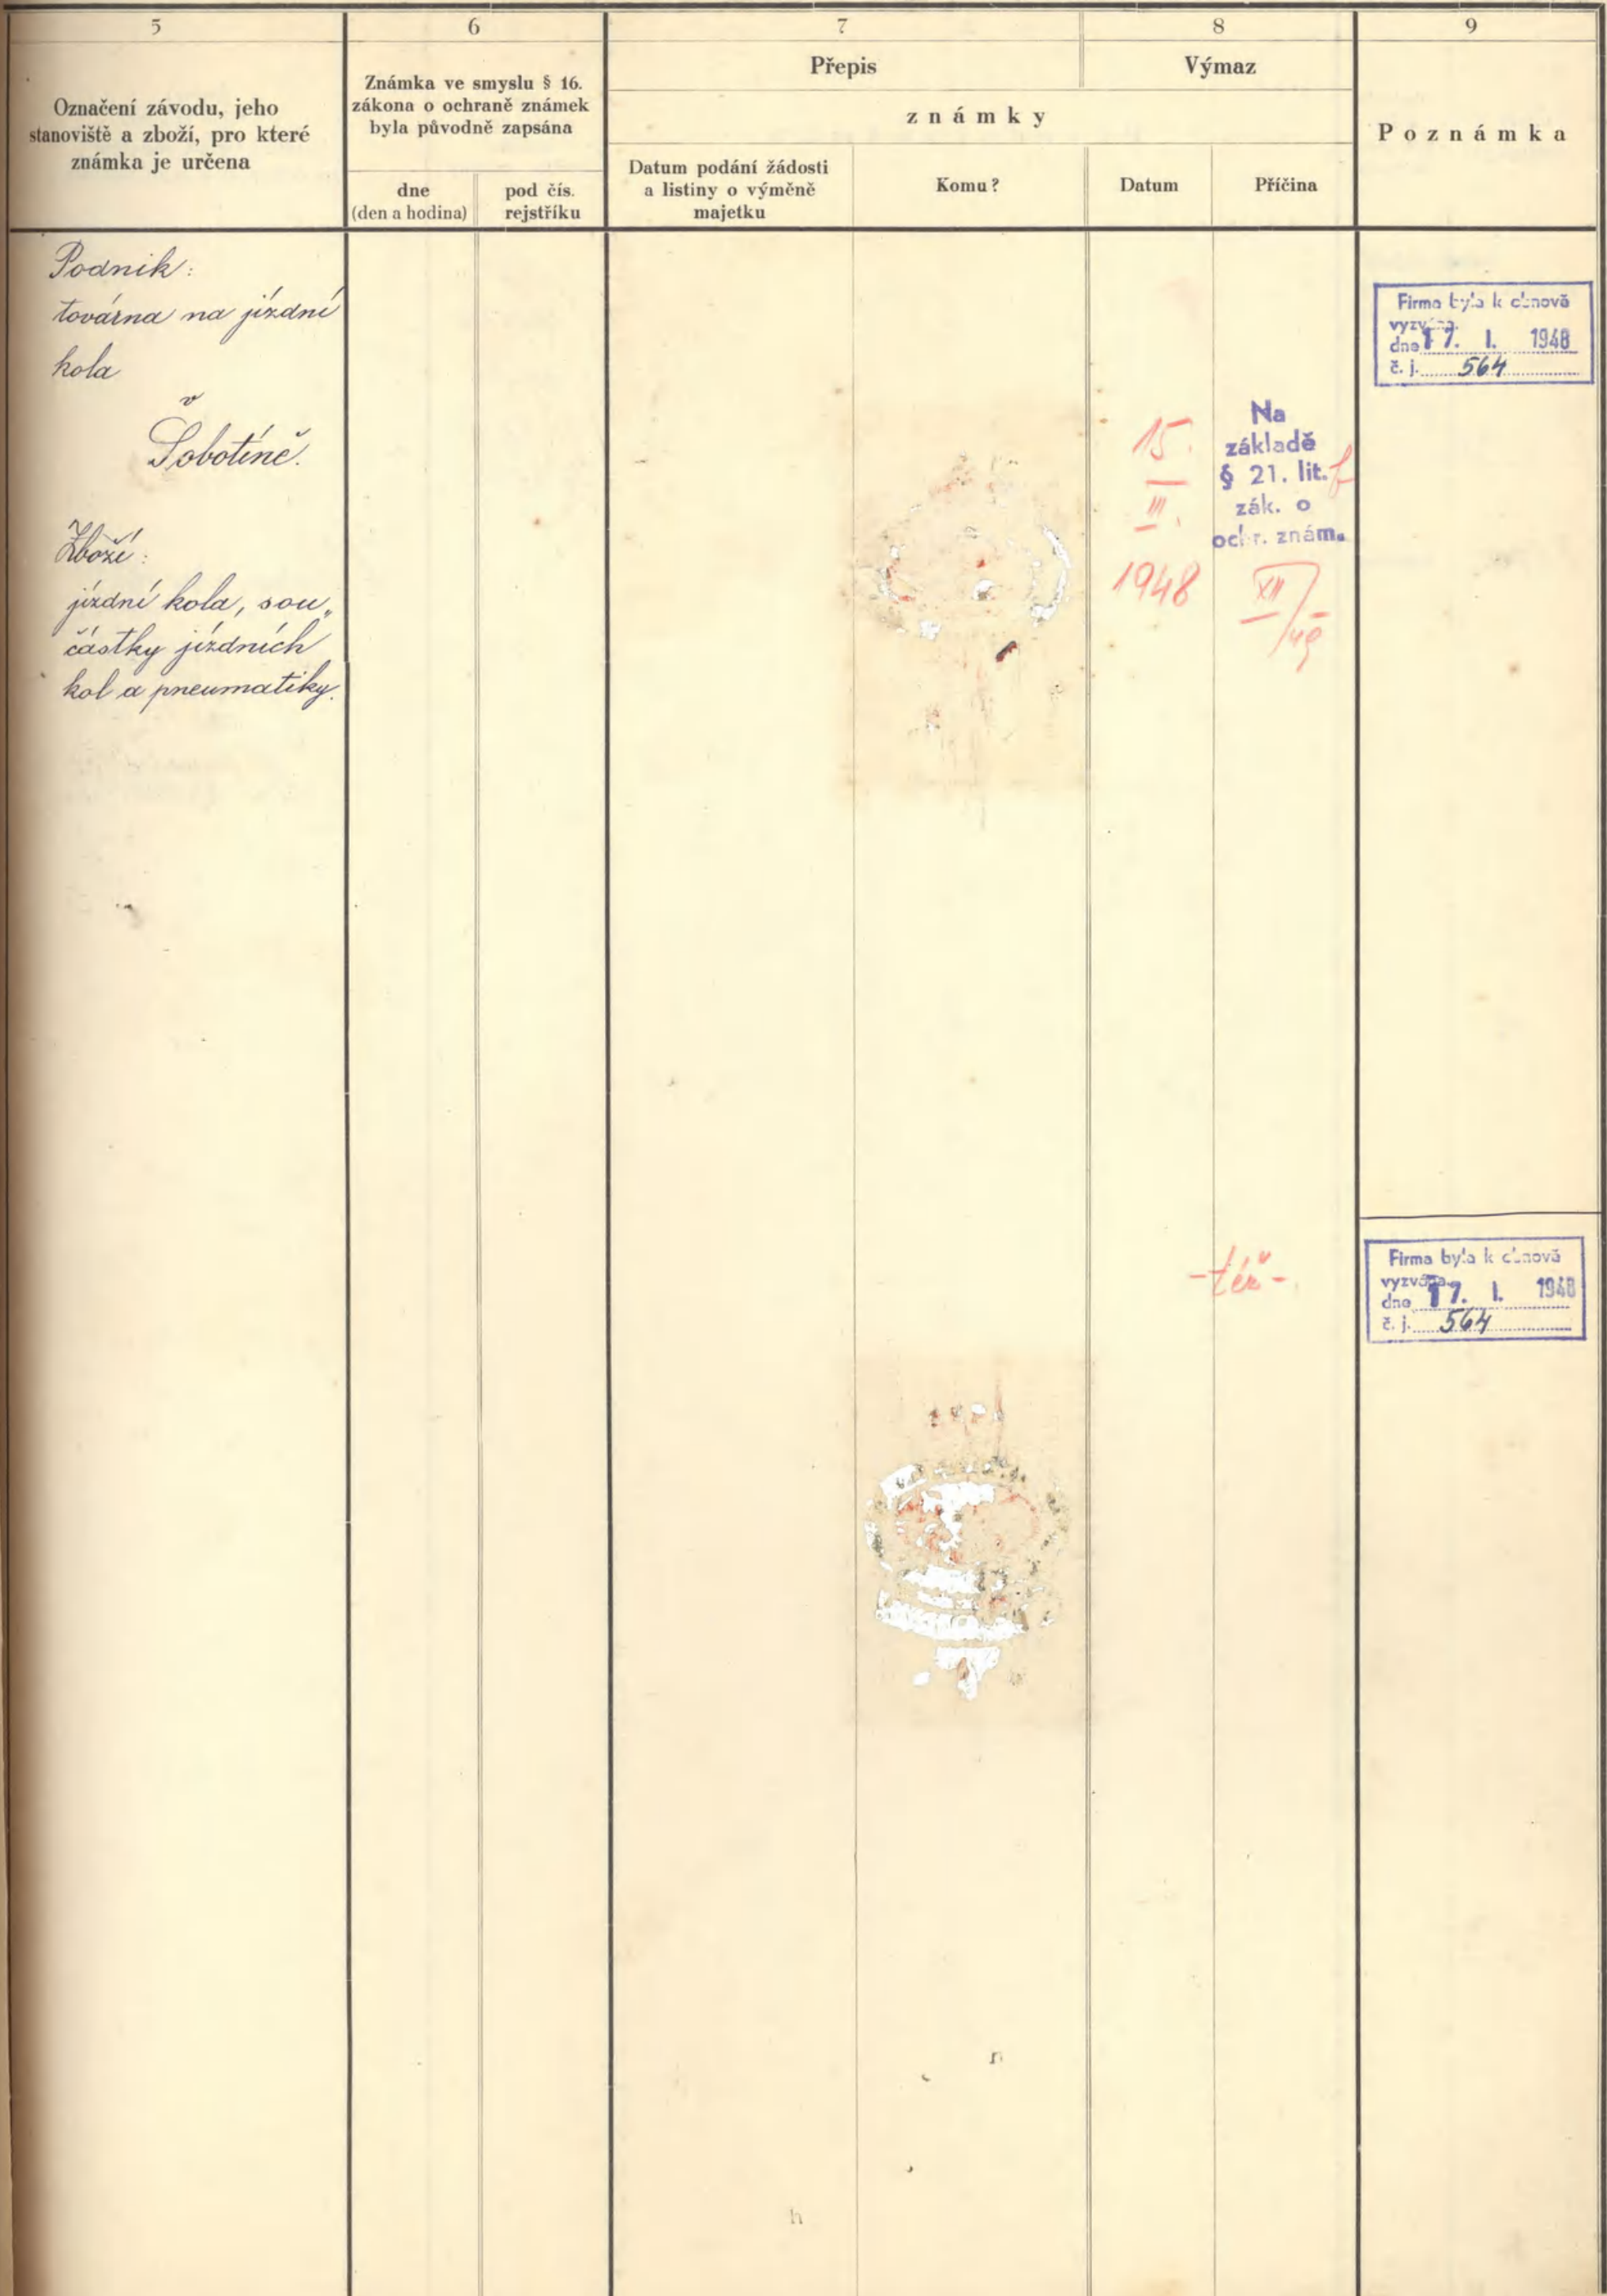 5
6
7
8
9
Označení závodu, jeho
stanoviště a zboží, pro které
známka je určena
Známka ve smyslu § 16.
zákona o ochraně známek
byla původně zapsána
dne
(den a hodina)
pod čís.
rejstříku
Přepis
Výmaz
známky
Datum podání žádosti
a listiny o výměně
majetku
Komu?
Datum
Příčina
Poznámka
Podnik:
továrna na jízdní
kola
v
Sobotíně.
Zboží:
jízdní kola, sou„
částky jízdních
kol a pneumatiky.
15.
III.
1948
Na
základě
§ 21. lit. f
zák. o
ochr. znám.
XII
Firma byla k obnově
vyzvána
dne 17. I. 1948
č. j. 564
-též-
Firma byla k obnově
vyzvána
dne 17. I. 1948
č. j. 564